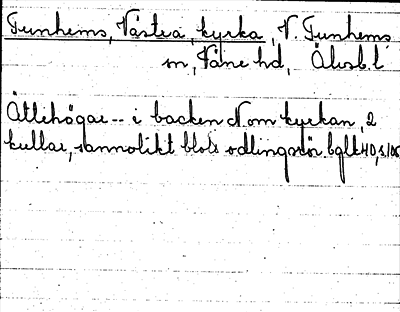 Tunhems, Västra, kyrka, V. Tunhems
sn, Väne hd, Älvsb.l
Ättehögar -- i backen N om kyrkan, 2
kullar, sannolikt blott odlingsrör. bglt 40, s 106